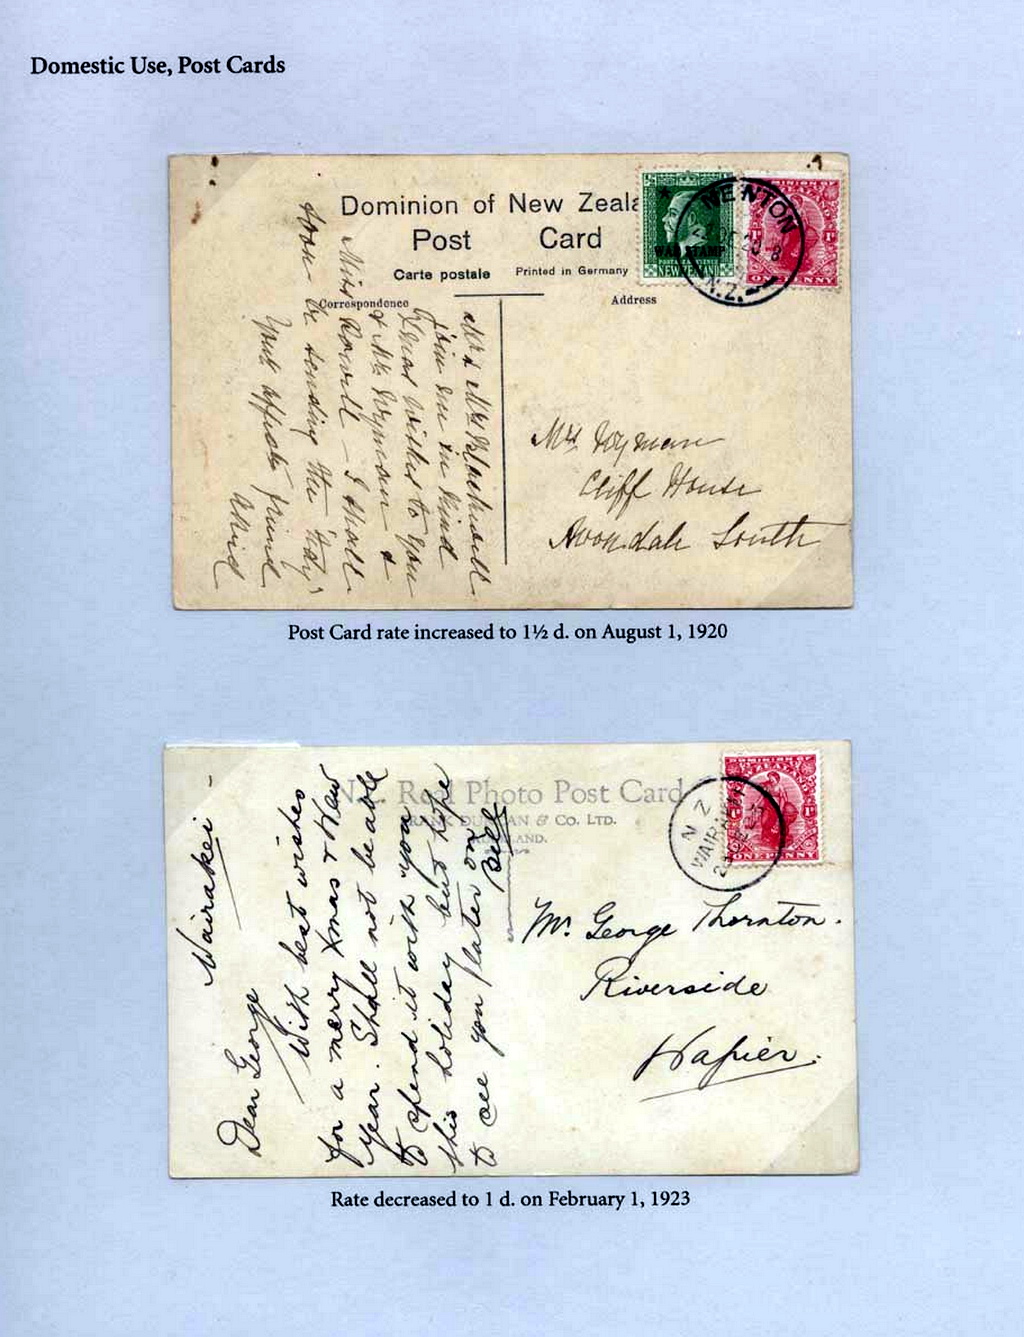 Domestic Use, Post Cards
Dominion of New Zeala
Post Card
Carte postale
Printed in Germany
Correspondence
Address
WAR STAMP
POSTAGE & REVENUE
NEW ZEALAND
ONE PENNY
NEWTON
N.Z.
Mr & Mrs Blackwell
join me in kind
Xmas wishes to you
& Mr Wyman &
Miss Rowell - I shall
soon be sending the "Lady"
Your affecte friend
Mrs Wyman
Cliff House
Avondale South
Post Card rate increased to 1½ d. on August 1, 1920
N.Z. Real Photo Post Card
FRANK DUNCAN & Co. LTD.
AUCKLAND.
ONE PENNY
N Z
WAIRAKEI
Wairakei -
Dear George
With best wishes
for a merry Xmas & New
Year. Shall not be able
to spend it with you
this holiday but hope
to see you later on
Bill
Mr. George Thornton.
Riverside
Napier.
Rate decreased to 1 d. on February 1, 1923